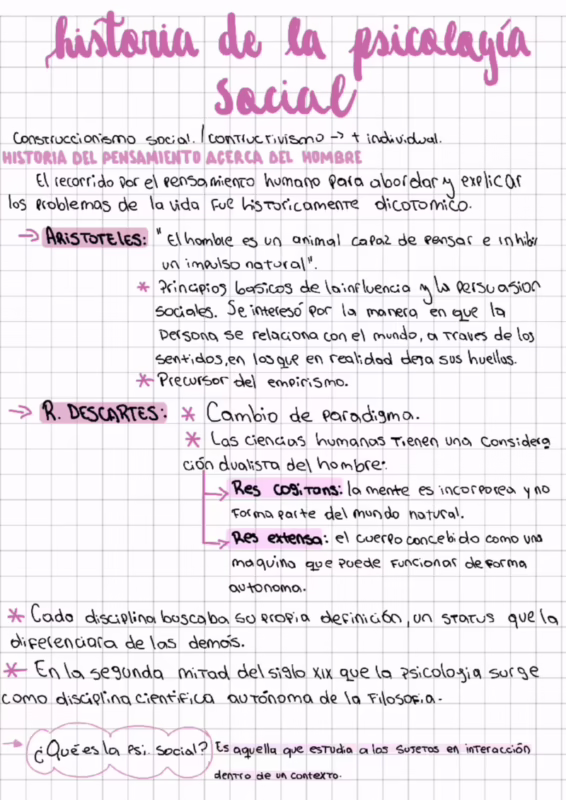 historia de la psicología
social
Construccionismo social. / contructivismo → + individual.
HISTORIA DEL PENSAMIENTO ACERCA DEL HOMBRE
El recorrido por el pensamiento humano para abordar y explicar
los problemas de la vida fue historicamente dicotomico.
→ ARISTOTELES: "El hombre es un animal capaz de pensar e inhibir
un impulso natural".
* Principios basicos de la influencia y la persuasion
sociales. Se interesó por la manera en que la
persona se relaciona con el mundo, a traves de los
sentidos, en los que en realidad deja sus huellas.
* Precursor del empirismo.
→ R. DESCARTES: * Cambio de paradigma.
* Las ciencias humanas tienen una considera
ción dualista del hombre:
→ Res cogitans: la mente es incorporea y no
forma parte del mundo natural.
→ Res extensa: el cuerpo concebido como una
maquina que puede funcionar de forma
autonoma.
* Cada disciplina buscaba su propia definición, un status que la
diferenciara de las demás.
* En la segunda mitad del siglo XIX que la psicologia surge
como disciplina cientifica autónoma de la filosofia.
→ ¿Qué es la Psi. social? Es aquella que estudia a los sujetos en interacción
dentro de un contexto.